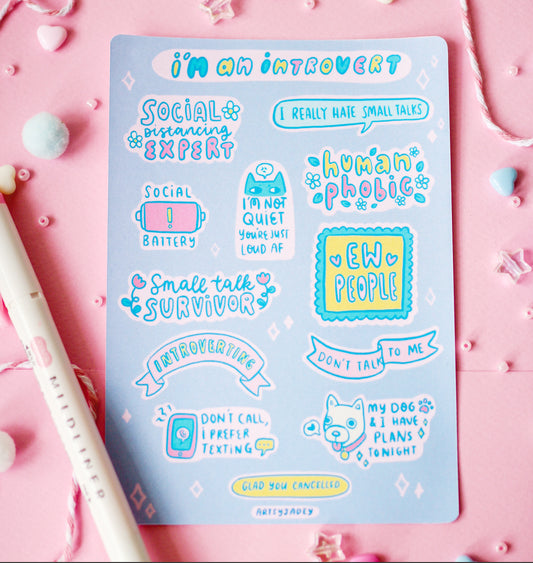 i'm an introvert
SOCIAL
distancing
EXPERT
I REALLY HATE SMALL TALKS
human
phobic
SOCIAL
!
BATTERY
I'M NOT
QUIET
YOU'RE JUST
LOUD AF
EW
PEOPLE
Small talk
SURVIVOR
INTROVERTING
DON'T TALK TO ME
DON'T CALL,
I PREFER
TEXTING
MY DOG
& I HAVE
PLANS
TONIGHT
GLAD YOU CANCELLED
ARTSYJADEY
MILDLINER